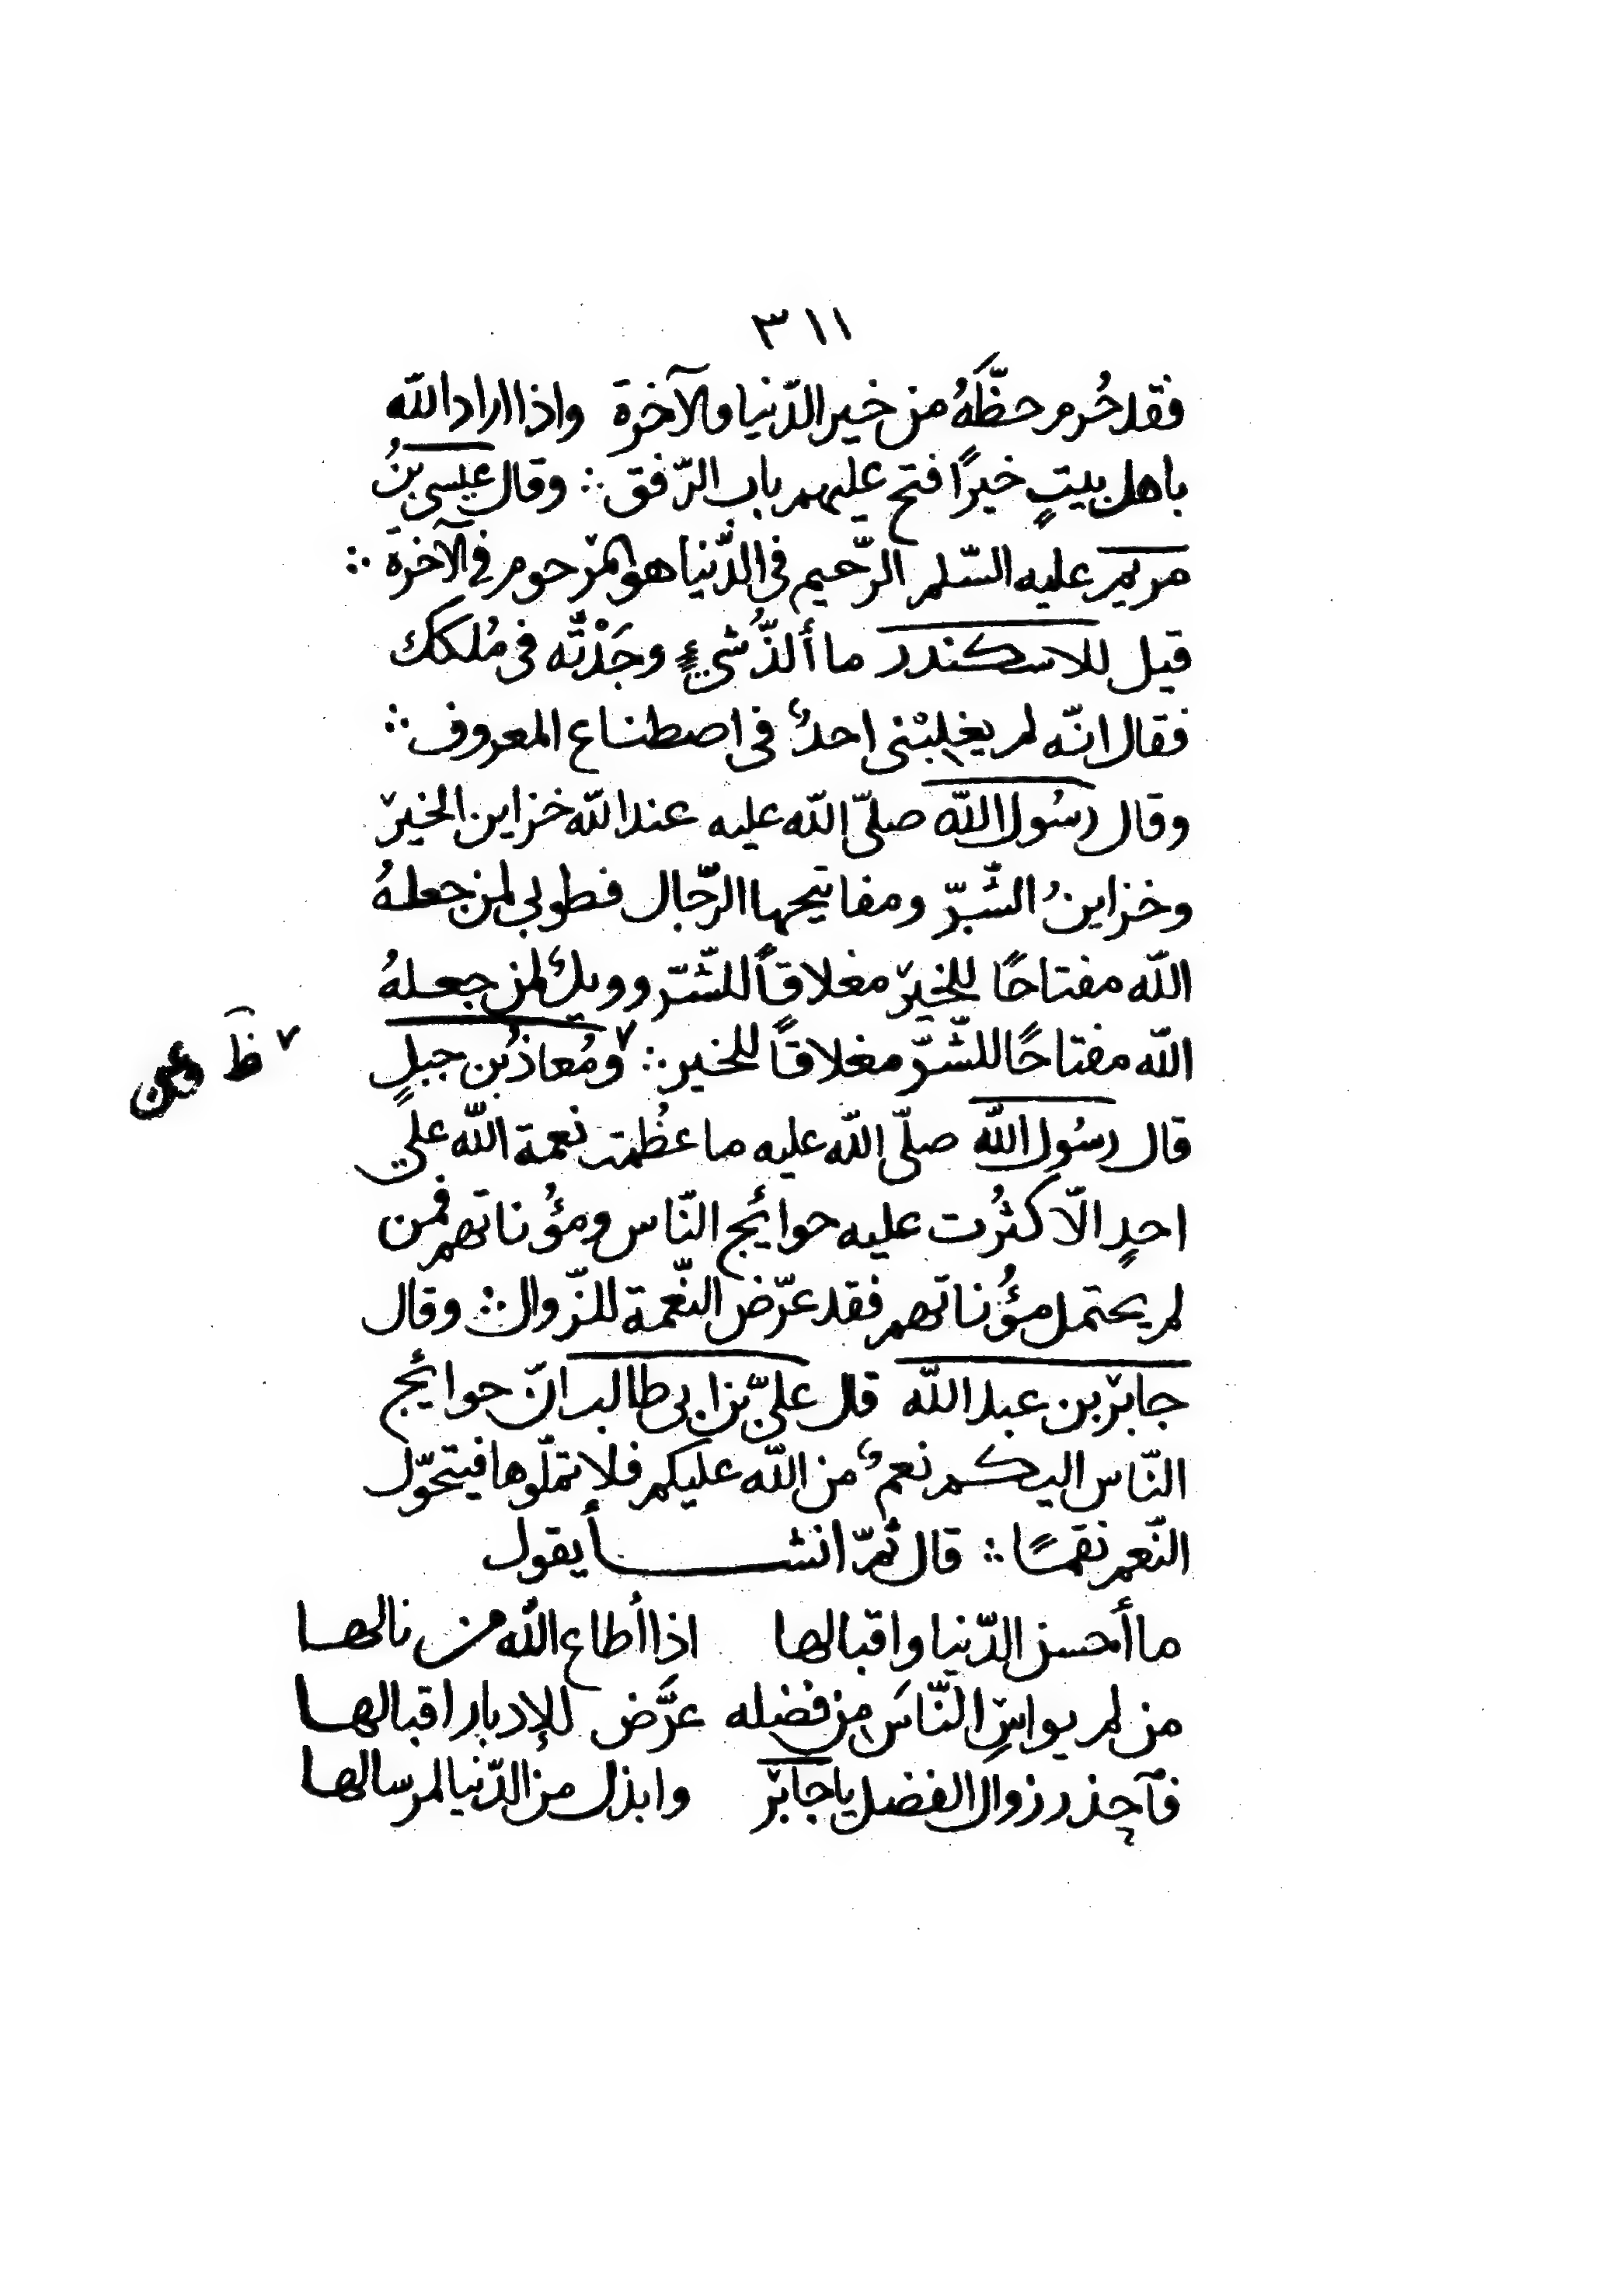 ٣١١
فقد حُرم حظَّهُ من خير الدّنيا والآخرة واذا اراد الله
باهل بيتٍ خيرًا فتح عليهم باب الرّفق ∴ وقال عيسى بنُ
مريم عليه السّلم الرّحيم فى الدُّنيا هو المرْحوم فى الآخرة ∴
قيل للاسكندر ما ألذُّ شيءٍ وجَدْتَه فى مُلكك
فقال انّه لم يغلِبْنى احدٌ فى اصطناع المعروف ∴
وقال رسُول الله صلّى الله عليه عند الله خزاين الخيْر
وخزاينُ الشّرّ ومفاتيحها الرّجال فطوبى لمن جعلهُ
الله مفتاحًا للخيْر مغلاقًا للشّرّ وويلٌ لمن جعلهُ
الله مفتاحًا للشّرّ مغلاقًا للخير ∴ ٧ ومُعاذُ بن جبلٍ
٧ ظ وعن
قال رسُول الله صلّى الله عليه ما عظُمت نعمة الله على
احدٍ الّا كثُرت عليه حوائج النّاس ومؤُناتهم فمن
لم يحتمل مؤُناتهم فقد عرّض النّعمة للزّوال ∴ وقال
جابرْ بن عبد الله قال علىّ بن ابى طالب انّ حوائج
النّاس اليكم نعمٌ من الله عليكم فلا تملّوها فيتحوّل
النّعم نقمًا ∴ قال ثمّ انشأ يقول
ما أحسن الدّنيا واقبالها اذا أطاع الله من نالها
من لم يواسِ النّاسَ من فضله عرَّض للإدبار اقبالها
فآحذر زوال الفضل يا جابرْ وابذل من الدّنيا لمن سالها